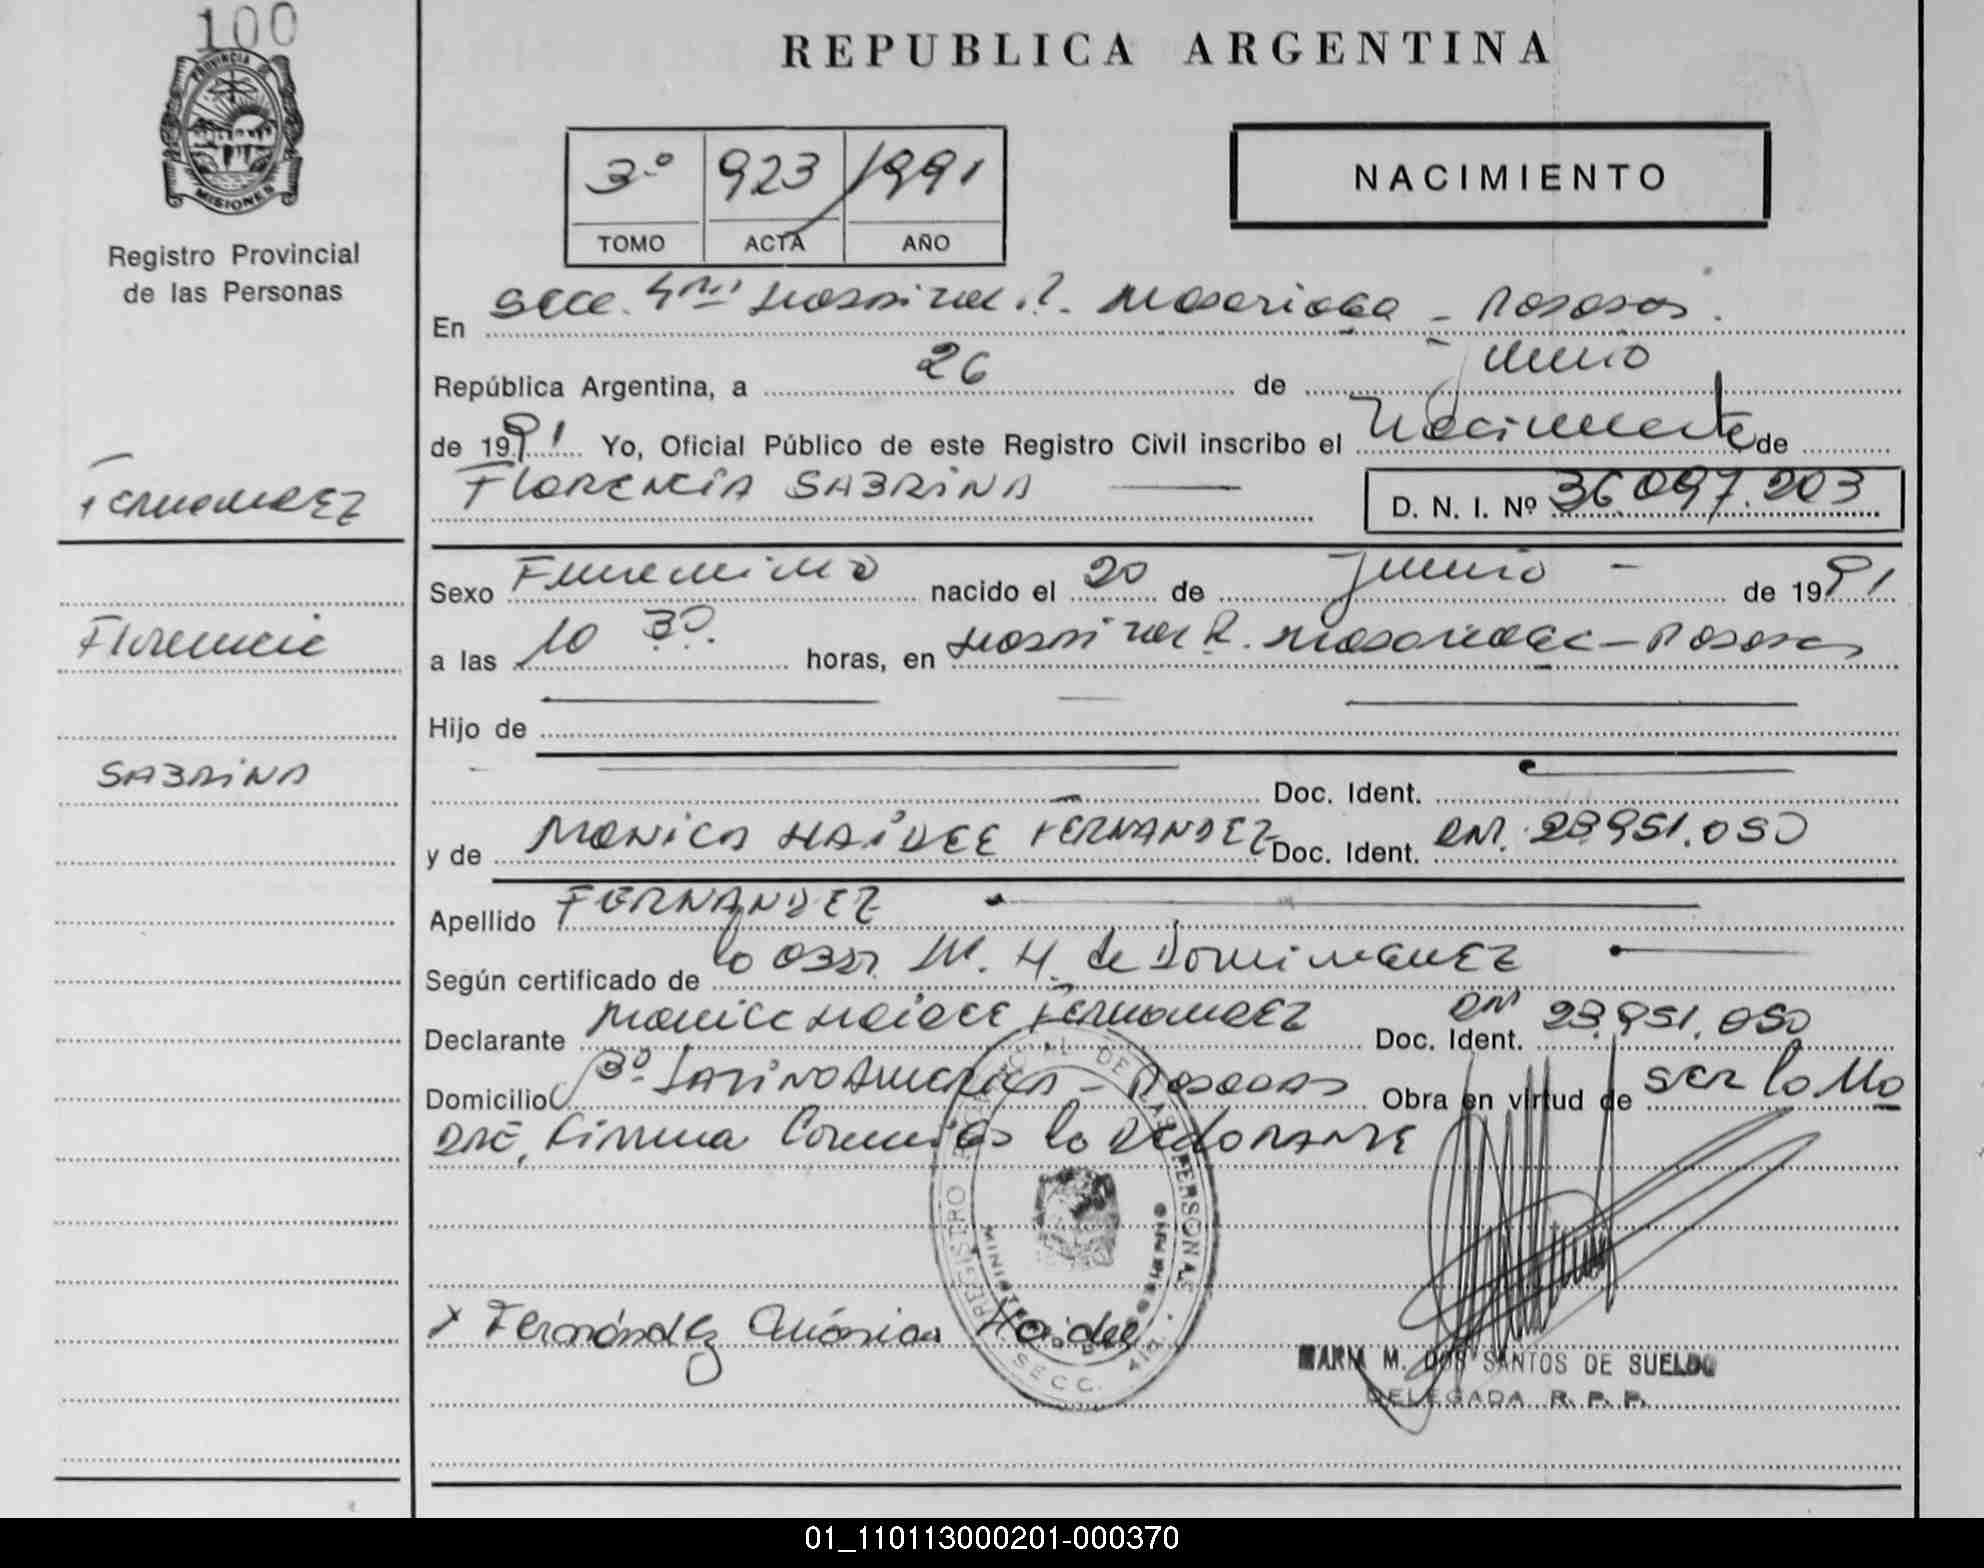 100
PROVINCIA DE
MISIONES
Registro Provincial
de las Personas
REPUBLICA ARGENTINA
3º 923 / 1991
TOMO ACTA AÑO
NACIMIENTO
En Secc. 4ta Hospital R. Madariaga - Posadas.
República Argentina, a 26 de Junio
de 1991 Yo, Oficial Público de este Registro Civil inscribo el Nacimiento de
FLORENCIA SABRINA D. N. I. Nº 36.097.203
Fernandez
Florencia
SABRINA
Sexo Femenino nacido el 20 de Junio - de 1991
a las 10 30. horas, en Hospital R. Madariaga - Posadas
Hijo de
Doc. Ident.
y de MONICA HAIDEE FERNANDEZ Doc. Ident. DNI. 23951.050
Apellido FERNANDEZ
Según certificado de la Obst. M. H. de DominguEZ
Declarante Monica Haidee FernandEZ Doc. Ident. DNI 23.951.050
Domicilio Bº LatinoAmerica - Posadas Obra en virtud de ser la Ma
dre, Firma Conmigo la Declarante
REGISTRO PROVINCIAL DE LAS PERSONAS
SECC. 4ta
x Fernández Mónica Haidee
MARIA M. DOS SANTOS DE SUELDO
DELEGADA R. P. P.
01_110113000201-000370